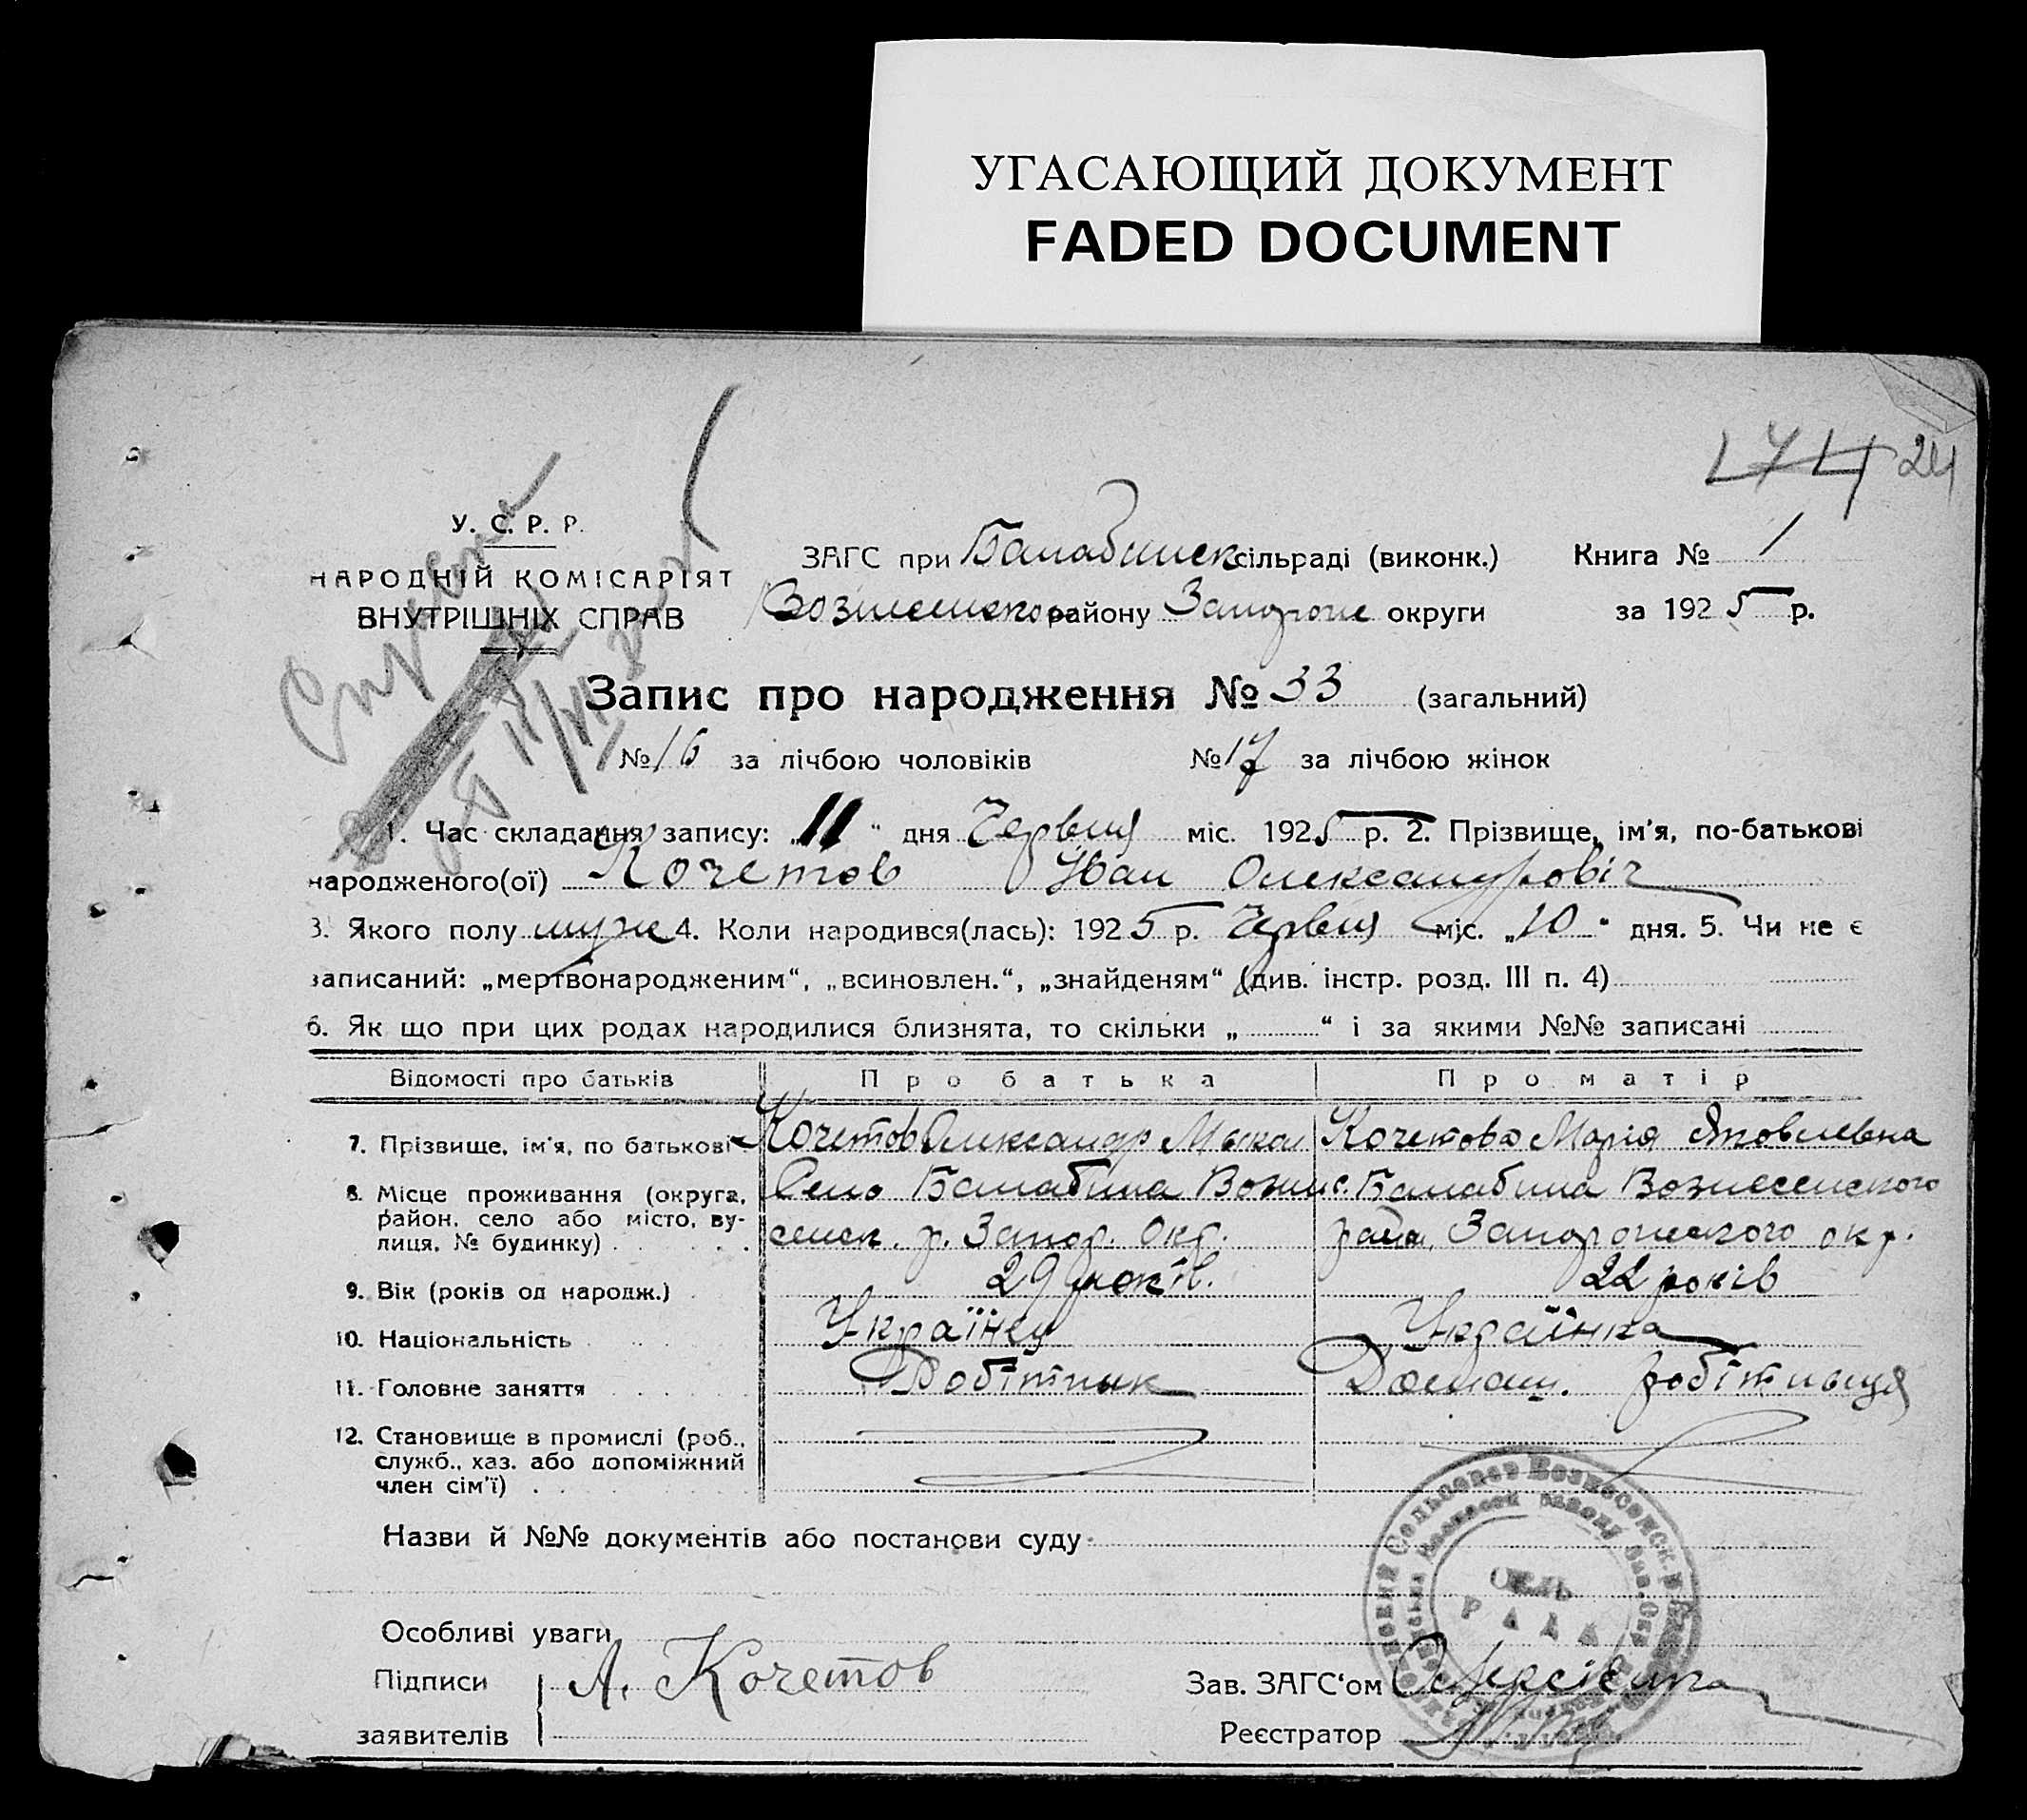 УГАСАЮЩИЙ ДОКУМЕНТ
FADED DOCUMENT
24
У. С. Р. Р.
НАРОДНІЙ КОМІСАРІЯТ
ВНУТРІШНІХ СПРАВ
ЗАГС при Балабинск сільраді (виконк.) Книга № 1
району Запорож округи за 1925 р.
Запис про народження № 33 (загальний)
№ 16 за лічбою чоловіків № 17 за лічбою жінок
1. Час складання запису: „11“ дня Червня міс. 1925 р. 2. Прізвище, ім'я, по-батькові
народженого(ої) Кочетов Іван Олександровіч
3. Якого полу муж 4. Коли народився(лась): 1925 р. Червня міс. „10“ дня. 5. Чи не є
записаний: „мертвонародженим“, „всиновлен.“, „знайденям“ (див. інстр. розд. III п. 4)
6. Як що при цих родах народилися близнята, то скільки „ “ і за якими №№ записані
Відомості про батьків Про батька Про матір
7. Прізвище, ім'я, по батькові Кочетов Олександр Кочетова Марія Яковлевна
8. Місце проживання (округа, Село Балабина Вознес. Балабина Вознесенского
район, село або місто, ву- сенск. р. Запор. Окр. Запорожского окр.
лиця, № будинку)
9. Вік (років од народж.) 29 років. 22 років
10. Національність Українец Українка
11. Головне заняття Робітник Домаш. робітныця
12. Становище в промислі (роб.,
служб., хаз. або допоміжний
член сім'ї)
Назви й №№ документів або постанови суду
Особливі уваги
Підписи А. Кочетов Зав. ЗАГС'ом
заявителів Реєстратор